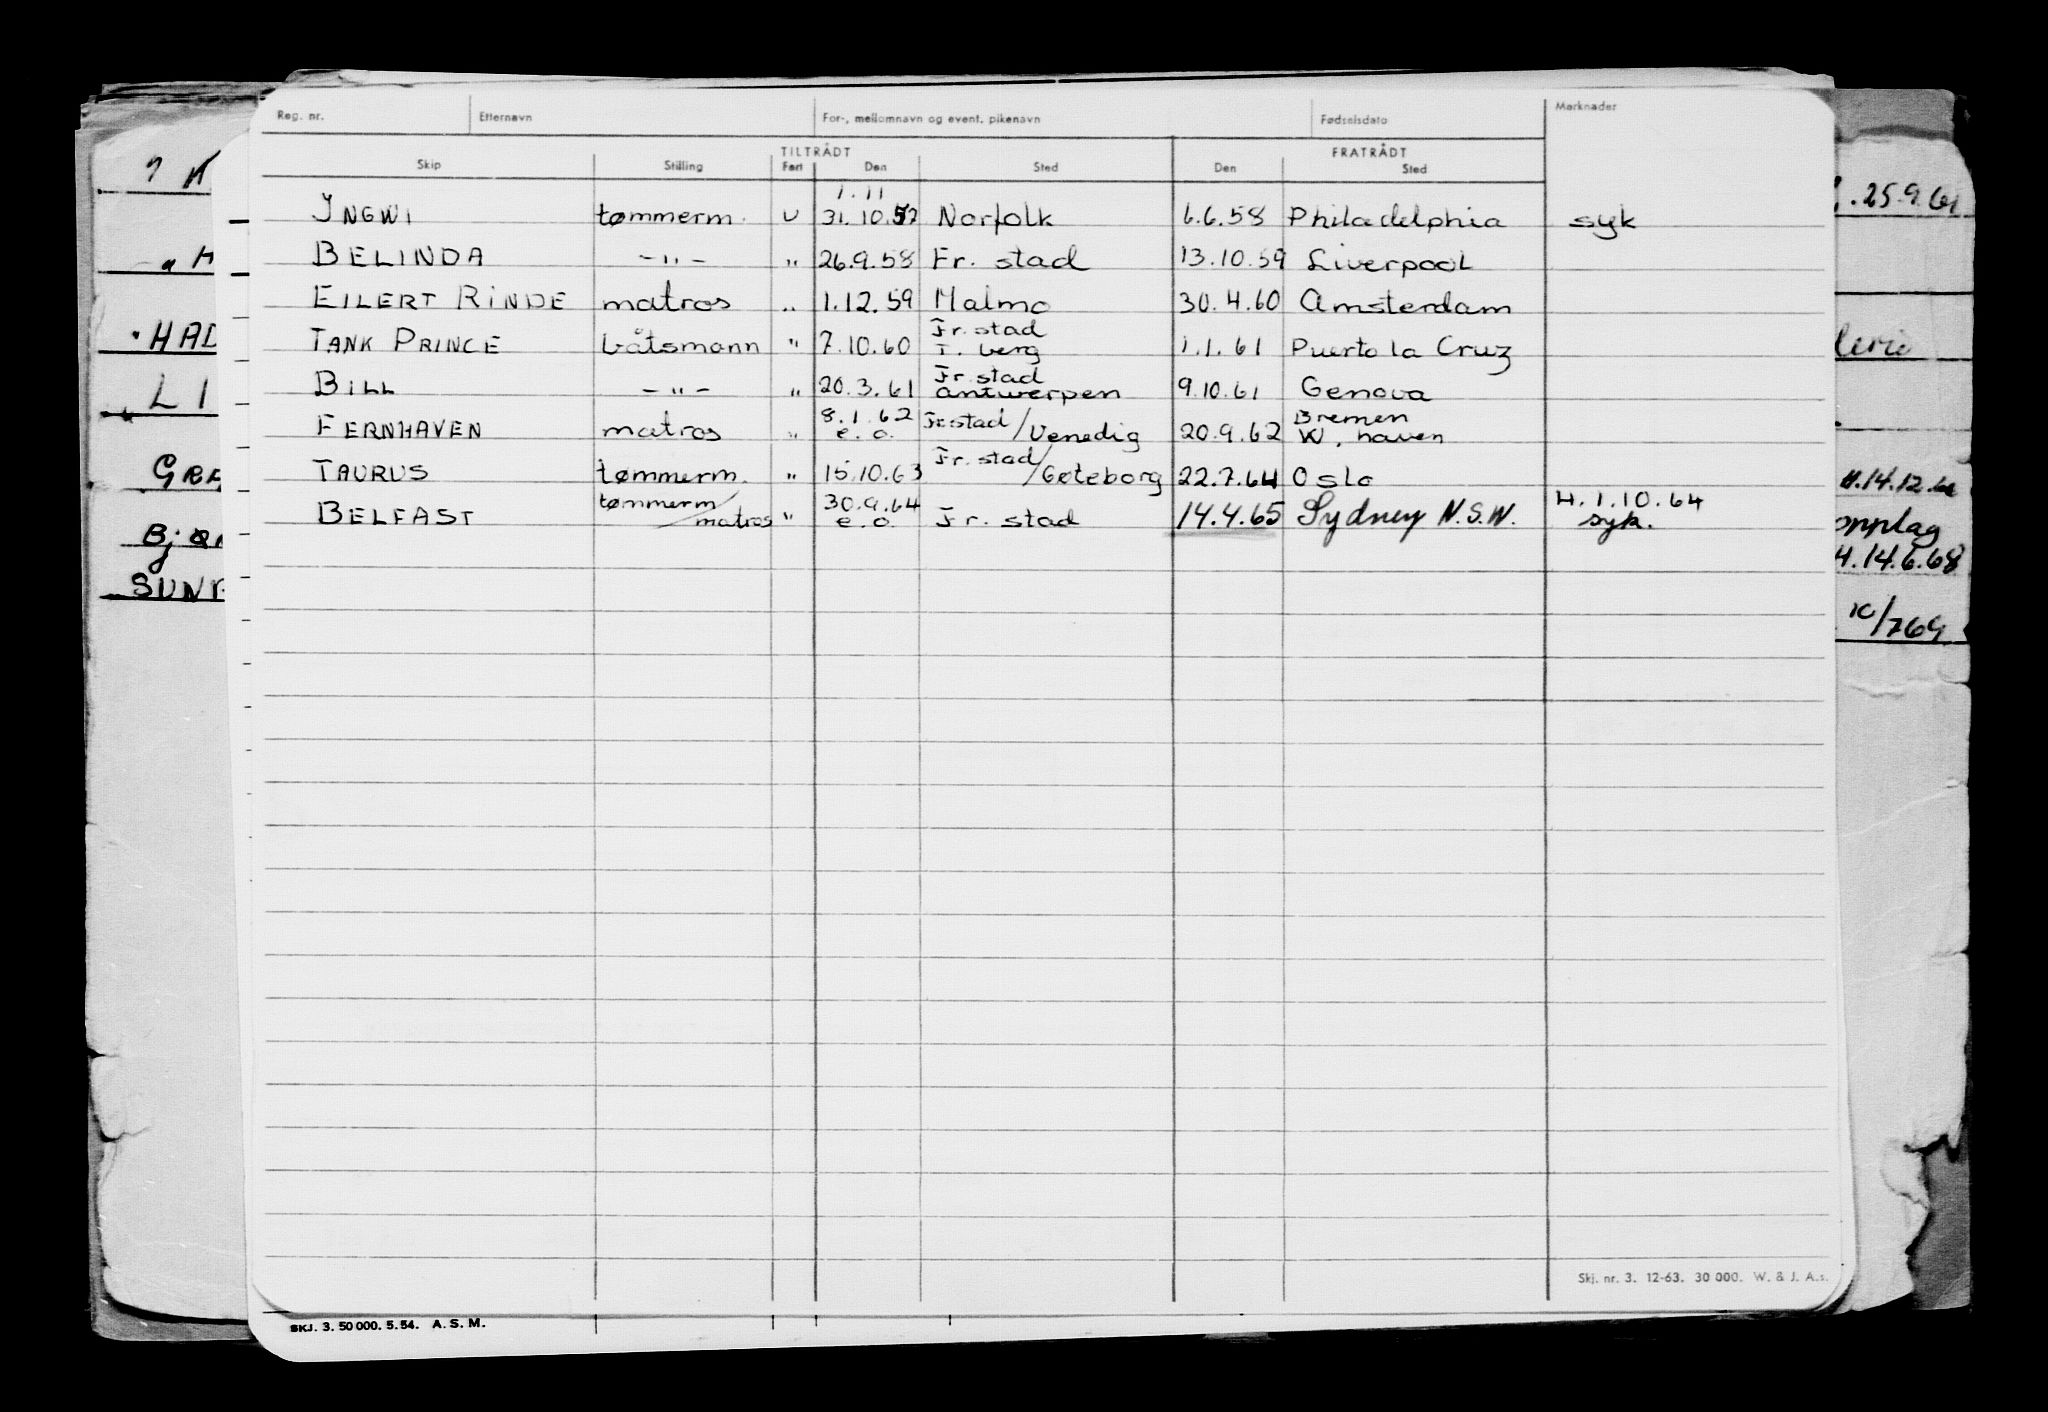 Reg. nr. Etternavn For-, mellomnavn og event. pikenavn Fødselsdato Merknader
TILTRÅDT FRATRÅDT
Skip Stilling Fart Den Sted Den Sted
1.11
YNGWI tømmerm. U 31.10.57 Norfolk 6.6.58 Philadelphia syk
BELINDA -"- " 26.9.58 Fr. stad 13.10.59 Liverpool
EILERT RINDE matros " 1.12.59 Malmø 30.4.60 Amsterdam
Fr. stad
TANK PRINCE båtsmann " 7.10.60 T. berg 1.1.61 Puerto la Cruz
Fr. stad
BILL -"- " 20.3.61 Antwerpen 9.10.61 Genova
8.1.62 Bremen
FERNHAVEN matros " e.o. Fr.stad/Venedig 20.9.62 W. haven
TAURUS tømmerm. " 15.10.63 Fr. stad/Gøteborg 22.7.64 Oslo
tømmerm/ 30.9.64 H.1.10.64
BELFAST matros " e.o. Fr. stad 14.4.65 Sydney N.S.W. syk.
Skj. nr. 3. 12-63. 30 000. W. & J. A.s.
SKJ. 3. 50 000. 5. 54. A. S. M.
HAD
LI
GRE
SUN
25.9.61
H.14.12.
opplag
H.14.6.68
10/769